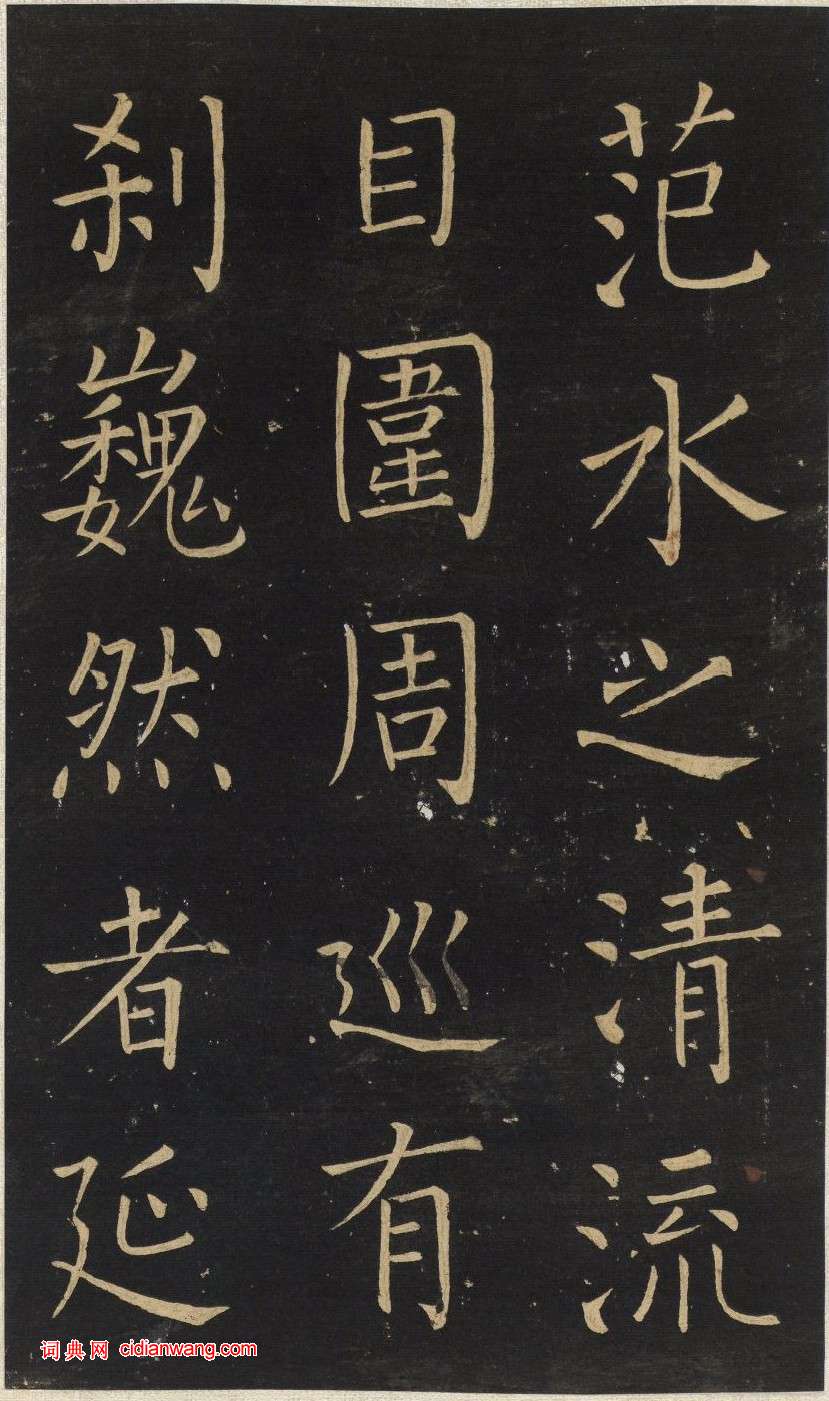 范水之清流
目圍周巡有
刹巍然者延
词典网 cidianwang.com